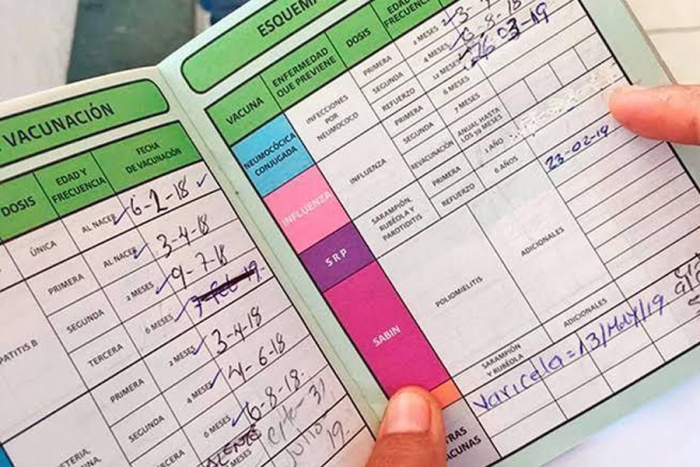 VACUNACIÓN
DOSIS
EDAD Y FRECUENCIA
FECHA DE VACUNACIÓN
ÚNICA
AL NACER
6-2-18
PRIMERA
AL NACER
3-4-18
SEGUNDA
2 MESES
9-7-18
TERCERA
6 MESES
PRIMERA
2 MESES
3-4-18
SEGUNDA
4 MESES
4-6-18
TERCERA
6 MESES
6-8-18
18 MESES
31
Julio
19.
VACUNA
ENFERMEDAD QUE PREVIENE
DOSIS
NEUMOCÓCICA CONJUGADA
INFECCIONES POR NEUMOCOCO
PRIMERA
2 MESES
SEGUNDA
4 MESES
8-18
REFUERZO
12 MESES
26-03-19
INFLUENZA
INFLUENZA
PRIMERA
6 MESES
SEGUNDA
7 MESES
REVACUNACIÓN
ANUAL HASTA LOS 59 MESES
S R P
SARAMPIÓN, RUBÉOLA Y PAROTIDITIS
PRIMERA
1 AÑO
REFUERZO
6 AÑOS
23-02-19
SABIN
POLIOMIELITIS
ADICIONALES
SARAMPIÓN Y RUBÉOLA
ADICIONALES
Varicela=13/May/19
VACUNAS